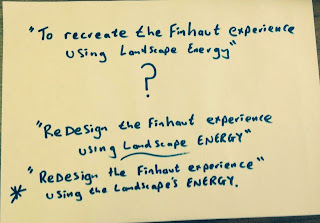 "To recreate the Finhaut experience
using Landscape Energy"
?
"ReDesign the Finhaut experience
using Landscape ENERGY"
* "Redesign the Finhaut experience"
using the Landscape's ENERGY.